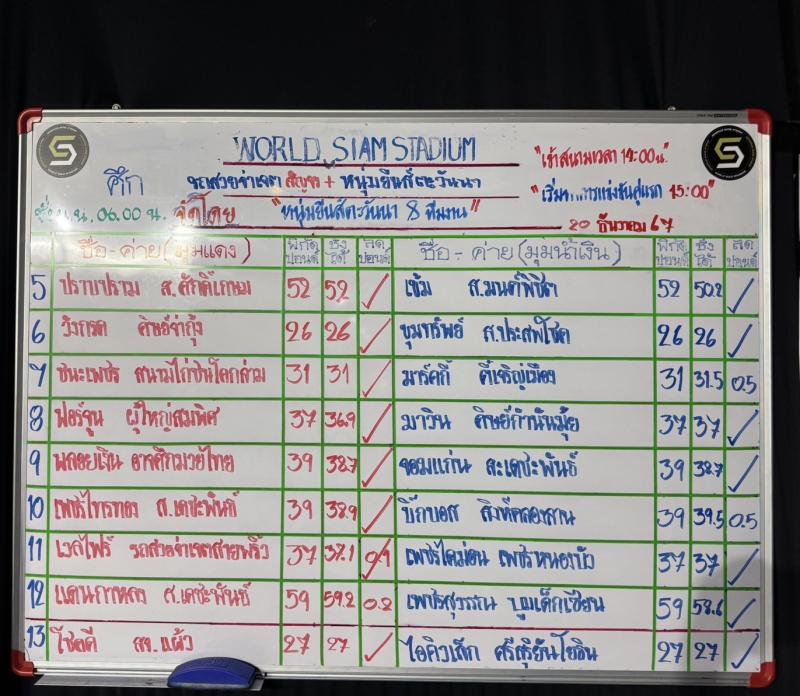 WORLD SIAM STADIUM
"เข้าสนามเวลา 14:00น."
ศึก รถสวยจ่าเจต สัญจร + หนุ่มยีนส์ตะวันนา
"เริ่มทำการแข่งขันคู่แรก 15:00"
ชั่ง น.น. 06.00 น. จัดโดย "หนุ่มยีนส์ตะวันนา & ทีมงาน"
20 ธันวาคม 67
ชื่อ - ค่าย (มุมแดง) พิกัด ปอนด์ ชั่งได้ ลด ปอนด์ ชื่อ - ค่าย (มุมน้ำเงิน) พิกัด ปอนด์ ชั่งได้ ลด ปอนด์
5 ปราบาปราม ส.ศักดิ์เกษม 52 52 ✓ เข้ม ส.มนต์พิชิต 52 50.2 ✓
6 วังกรด ศิษย์จ่ากุ้ง 26 26 ✓ ขุมทรัพย์ ส.ประสพโชค 26 26 ✓
7 ชนะเพชร สนามไก่ชนโคกส้วม 31 31 ✓ มาร์คกี้ ตี๋เจริญเมือง 31 31.5 0.5
8 ฟอร์จูน ผู้ใหญ่สมพิศ 37 36.9 ✓ มาวิน ศิษย์กำนันมุ้ย 37 37 ✓
9 พลอยเงิน อาจศึกมวยไทย 39 38.7 ✓ จอมแก่น ส.เดชะพันธ์ 39 38.7 ✓
10 เพชรไทรทอง ส.เดชะพันธ์ 39 38.9 ✓ บิ๊กบอส สิงห์คลองสาน 39 39.5 0.5
11 เวลไฟร์ รถสวยจ่าเจตสายพริ้ว 37 37.1 0.1 เพชรไดม่อน เพชรหนองบัว 37 37 ✓
12 แดนกาหลง ส.เดชะพันธ์ 59 59.2 0.2 เพชรสุวรรณ บูมเด็กเซียน 59 58.6 ✓
13 โชคดี สจ.แผ้ว 27 27 ✓ ไอคิวเล็ก ศรีสุริยันโยธิน 27 27 ✓